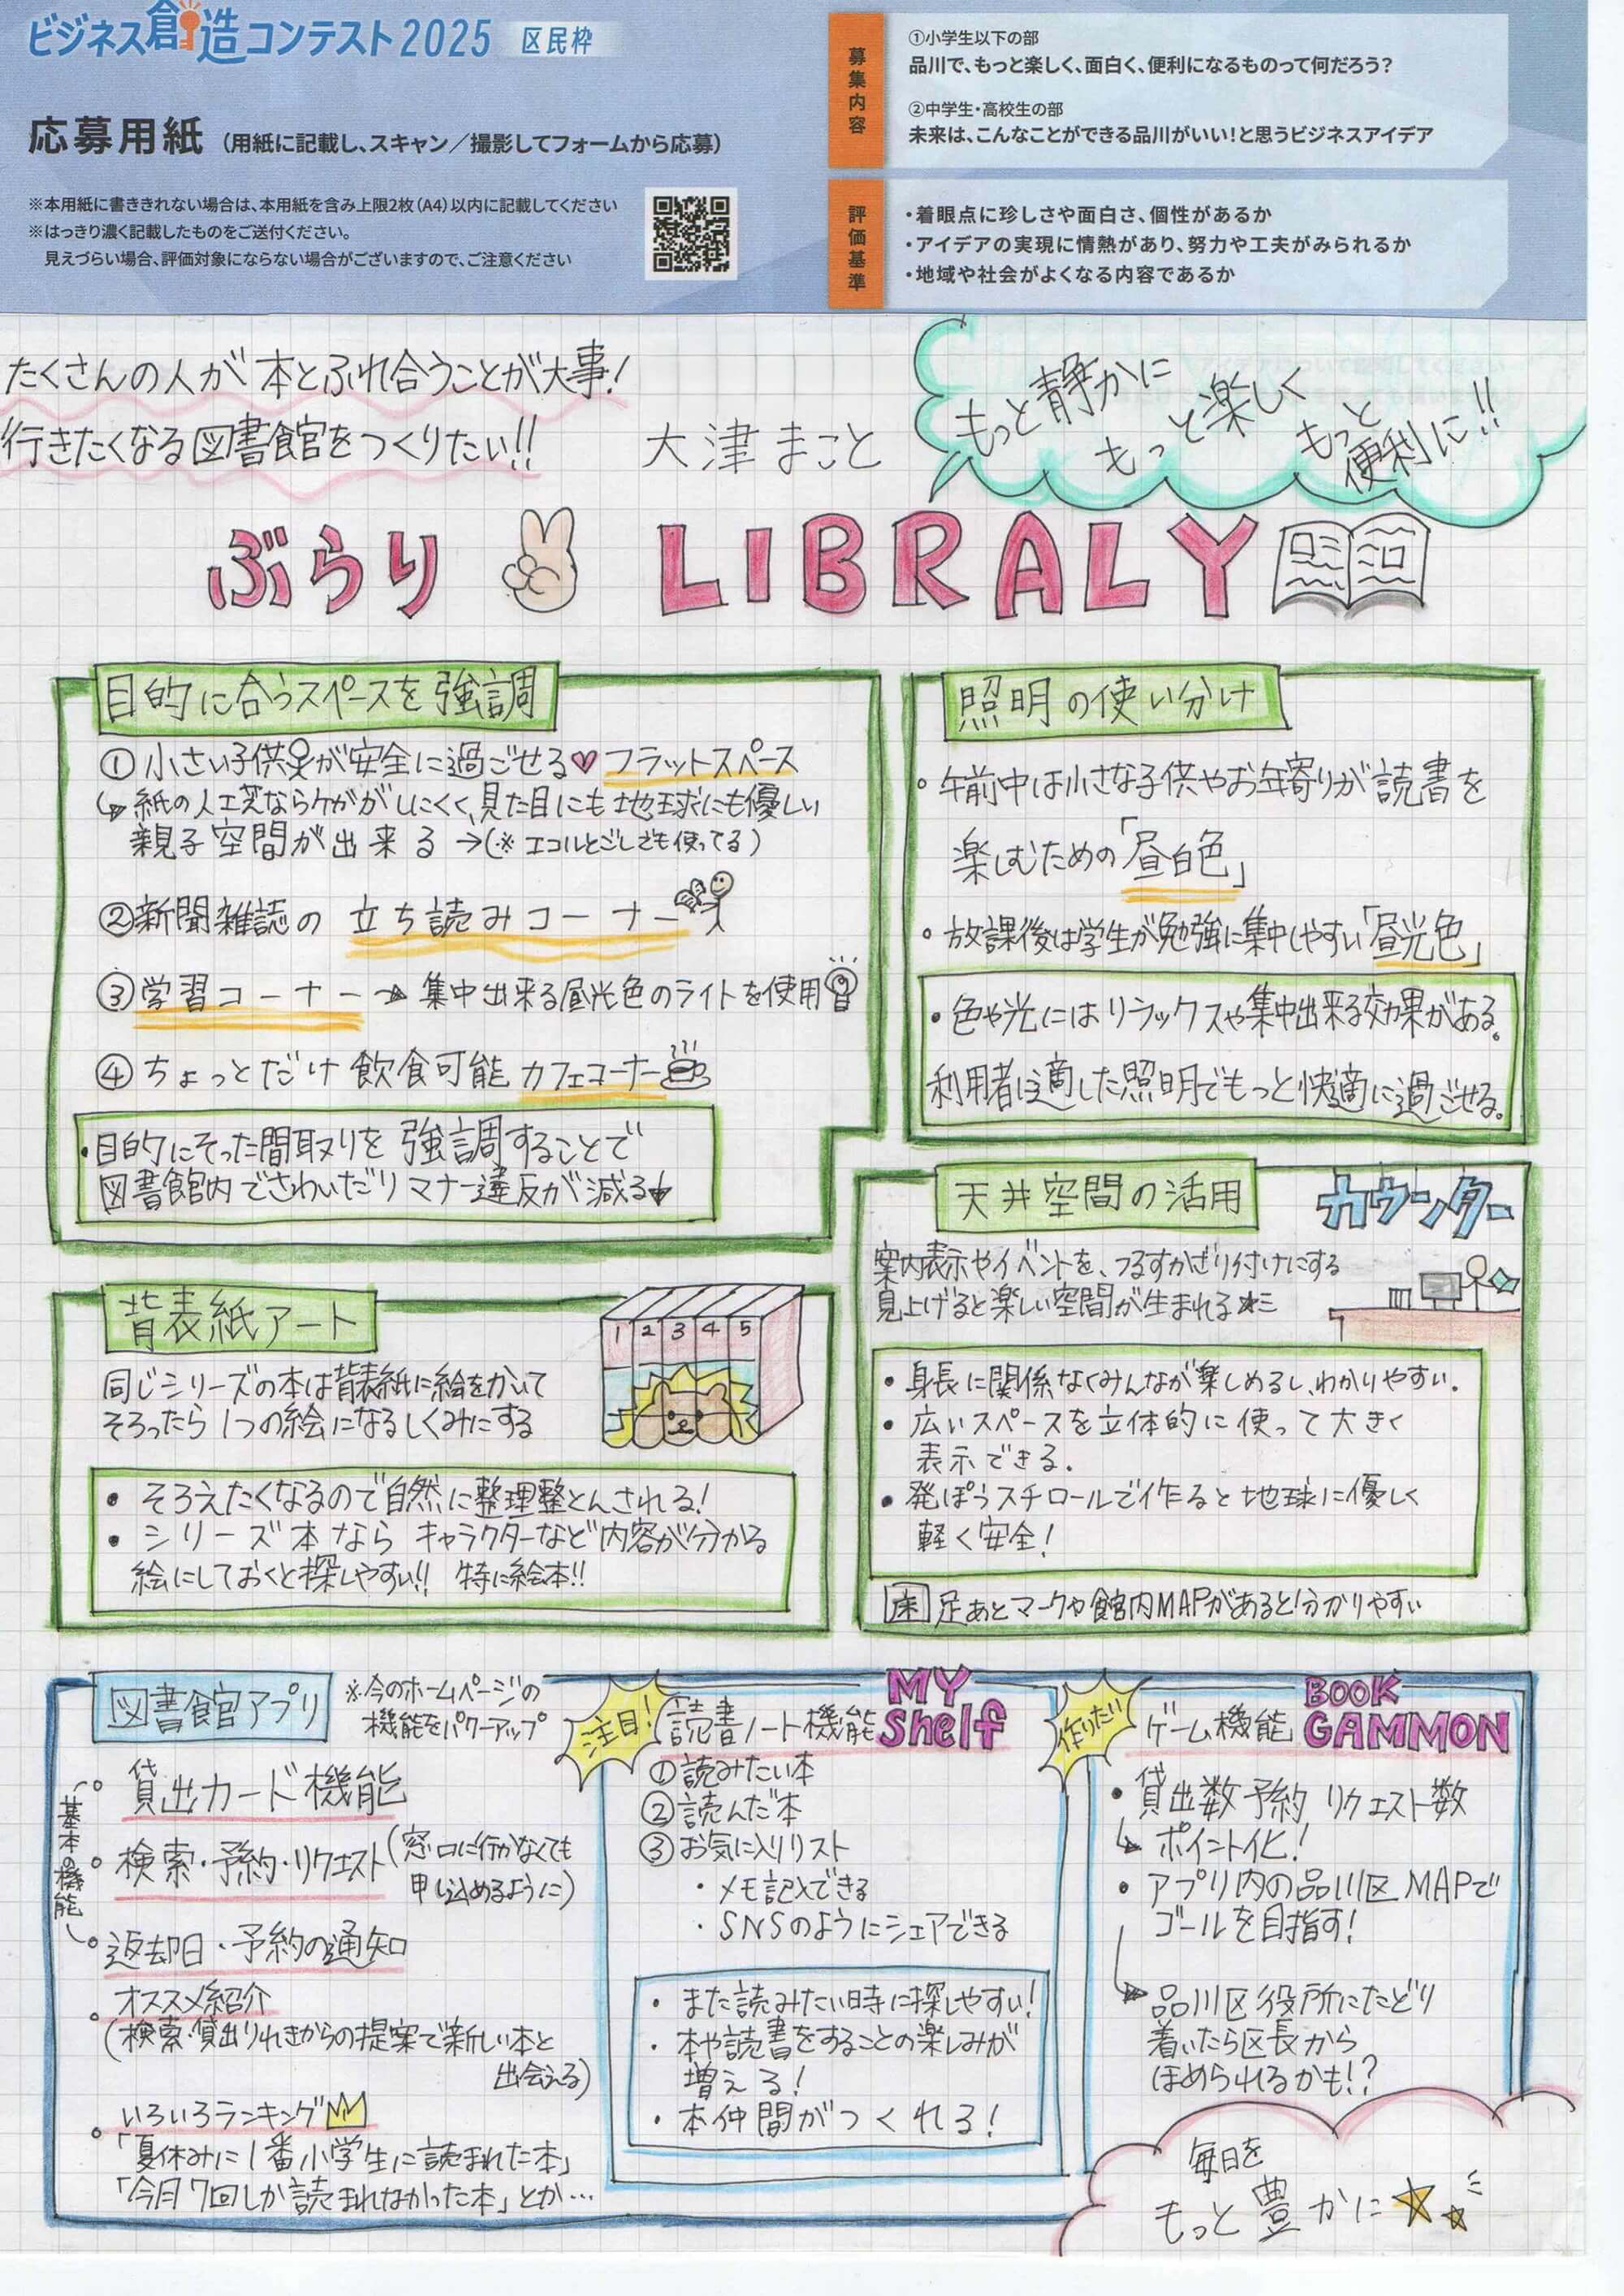 ビジネス創造コンテスト2025 区民枠
応募用紙 (用紙に記載し、スキャン／撮影してフォームから応募)
※本用紙に書ききれない場合は、本用紙を含み上限2枚(A4)以内に記載してください
※はっきり濃く記載したものをご送付ください。
見えづらい場合、評価対象にならない場合がございますので、ご注意ください
募集内容
①小学生以下の部
品川で、もっと楽しく、面白く、便利になるものって何だろう?
②中学生・高校生の部
未来は、こんなことができる品川がいい!と思うビジネスアイデア
評価基準
・着眼点に珍しさや面白さ、個性があるか
・アイデアの実現に情熱があり、努力や工夫がみられるか
・地域や社会がよくなる内容であるか
たくさんの人が本とふれ合うことが大事!
行きたくなる図書館をつくりたい!!
大津まこと
もっと静かに
もっと楽しく
もっと
便利に!!
ぶらり LIBRALY
目的に合うスペースを強調
①小さい子供が安全に過ごせる♡フラットスペース
↳紙の人工芝ならケガがしにくく、見た目にも地球にも優しい
親子空間が出来る→(※エコルとごしでも使ってる)
②新聞雑誌の 立ち読みコーナー
③学習コーナー→集中出来る昼光色のライトを使用
④ちょっとだけ飲食可能 カフェコーナー
・目的にそった間取りを強調することで
図書館内でさわいだりマナー違反が減る
照明の使い分け
・午前中は小さな子供やお年寄りが読書を
楽しむための「昼白色」
・放課後は学生が勉強に集中しやすい「昼光色」
・色や光にはリラックスや集中出来る効果がある。
利用者に適した照明でもっと快適に過ごせる。
背表紙アート
同じシリーズの本は背表紙に絵をかいて
そろったら1つの絵になるしくみにする
1 2 3 4 5
・そろえたくなるので自然に整理整とんされる!
・シリーズ本なら キャラクターなど内容が分かる
絵にしておくと探しやすい!! 特に絵本!!
天井空間の活用
カウンター
案内表示やイベントを、つるすかざり付けにする
見上げると楽しい空間が生まれる
・身長に関係なくみんなが楽しめるし、わかりやすい。
・広いスペースを立体的に使って大きく
表示できる。
・発ぽうスチロールで作ると地球に優しく
軽く安全!
床 足あとマークや館内MAPがあると分かりやすい
図書館アプリ
※今のホームページの
機能をパワーアップ
基本の機能
・貸出カード機能
・検索・予約・リクエスト(窓口に行かなくても
申し込めるように)
・返却日・予約の通知
・オススメ紹介
(検索・貸出りれきからの提案で新しい本と
出会える)
・いろいろランキング
「夏休みに1番小学生に読まれた本」
「今月7回しか読まれなかった本」とか…
注目!
読書ノート機能 MY Shelf
①読みたい本
②読んだ本
③お気に入りリスト
・メモ記入できる
・SNSのようにシェアできる
・また読みたい時に探しやすい!
・本や読書をすることの楽しみが
増える!
・本仲間がつくれる!
作りたい
ゲーム機能 BOOK GAMMON
・貸出数 予約 リクエスト数
↳ポイント化!
・アプリ内の品川区MAPで
ゴールを目指す!
→品川区役所にたどり
着いたら区長から
ほめられるかも!?
毎日を
もっと豊かに